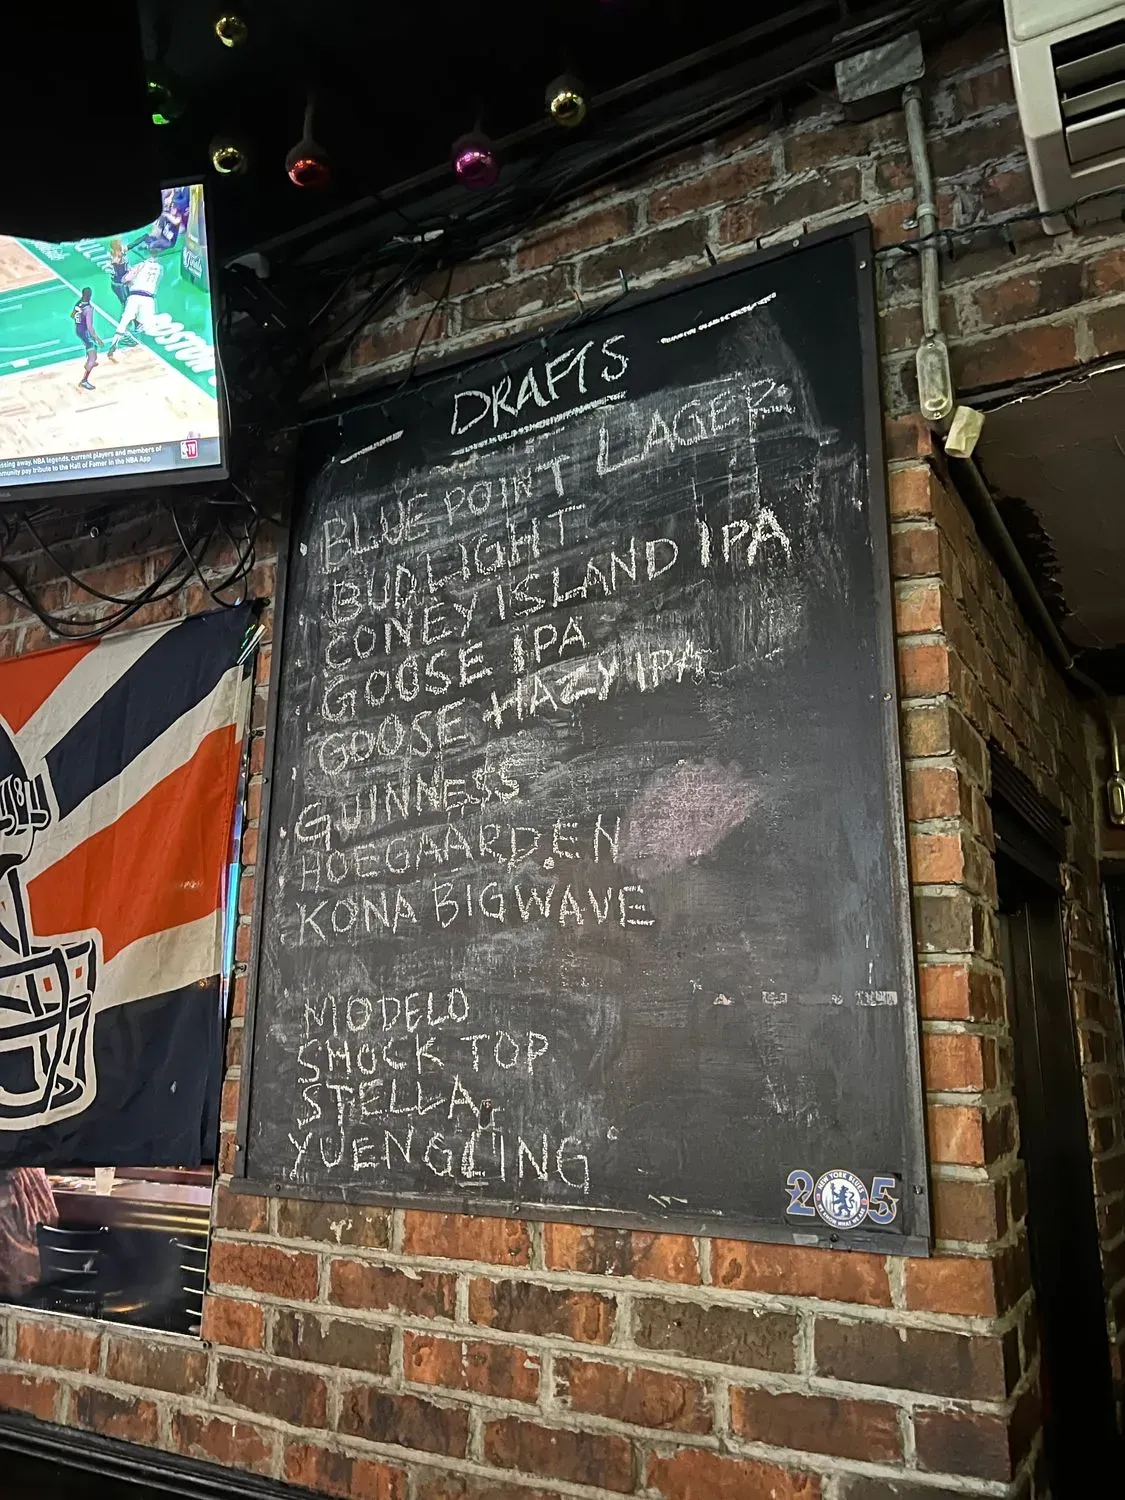 DRAFTS
BLUE POINT LAGER
BUD LIGHT
CONEY ISLAND IPA
GOOSE IPA
GOOSE HAZY IPA
GUINNESS
HOEGAARDEN
KONA BIGWAVE
MODELO
SHOCK TOP
STELLA
YUENGLING
BOSTON
passing away. NBA legends, current players and members of
community pay tribute to the Hall of Famer in the NBA App
TV
NEW YORK BLUES
25